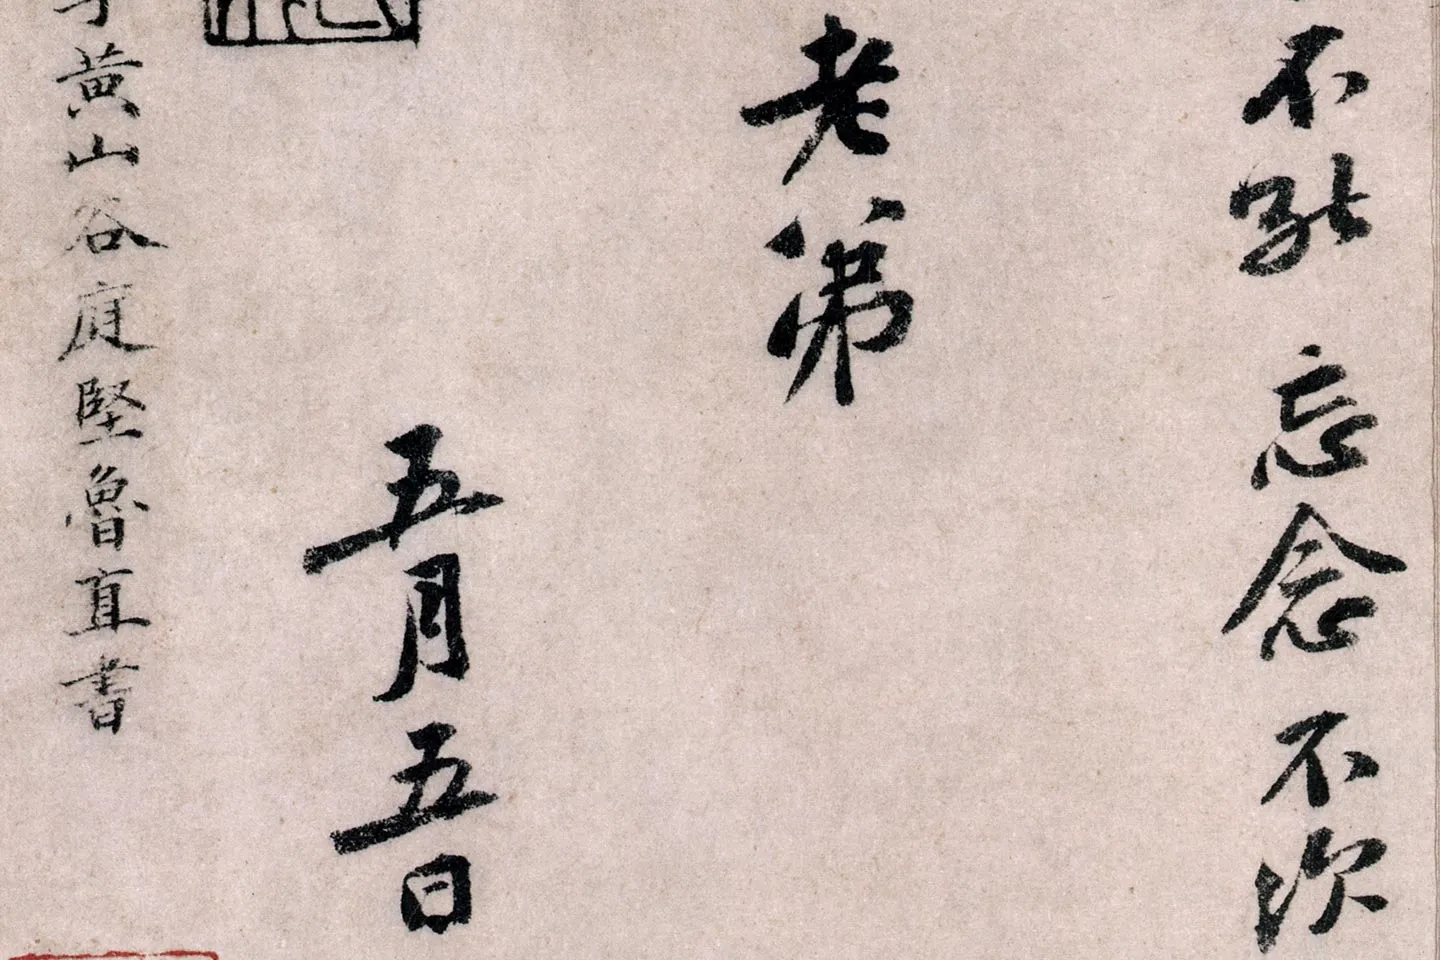 不能忘念不次
老弟
五月五日
黄山谷庭堅魯直書